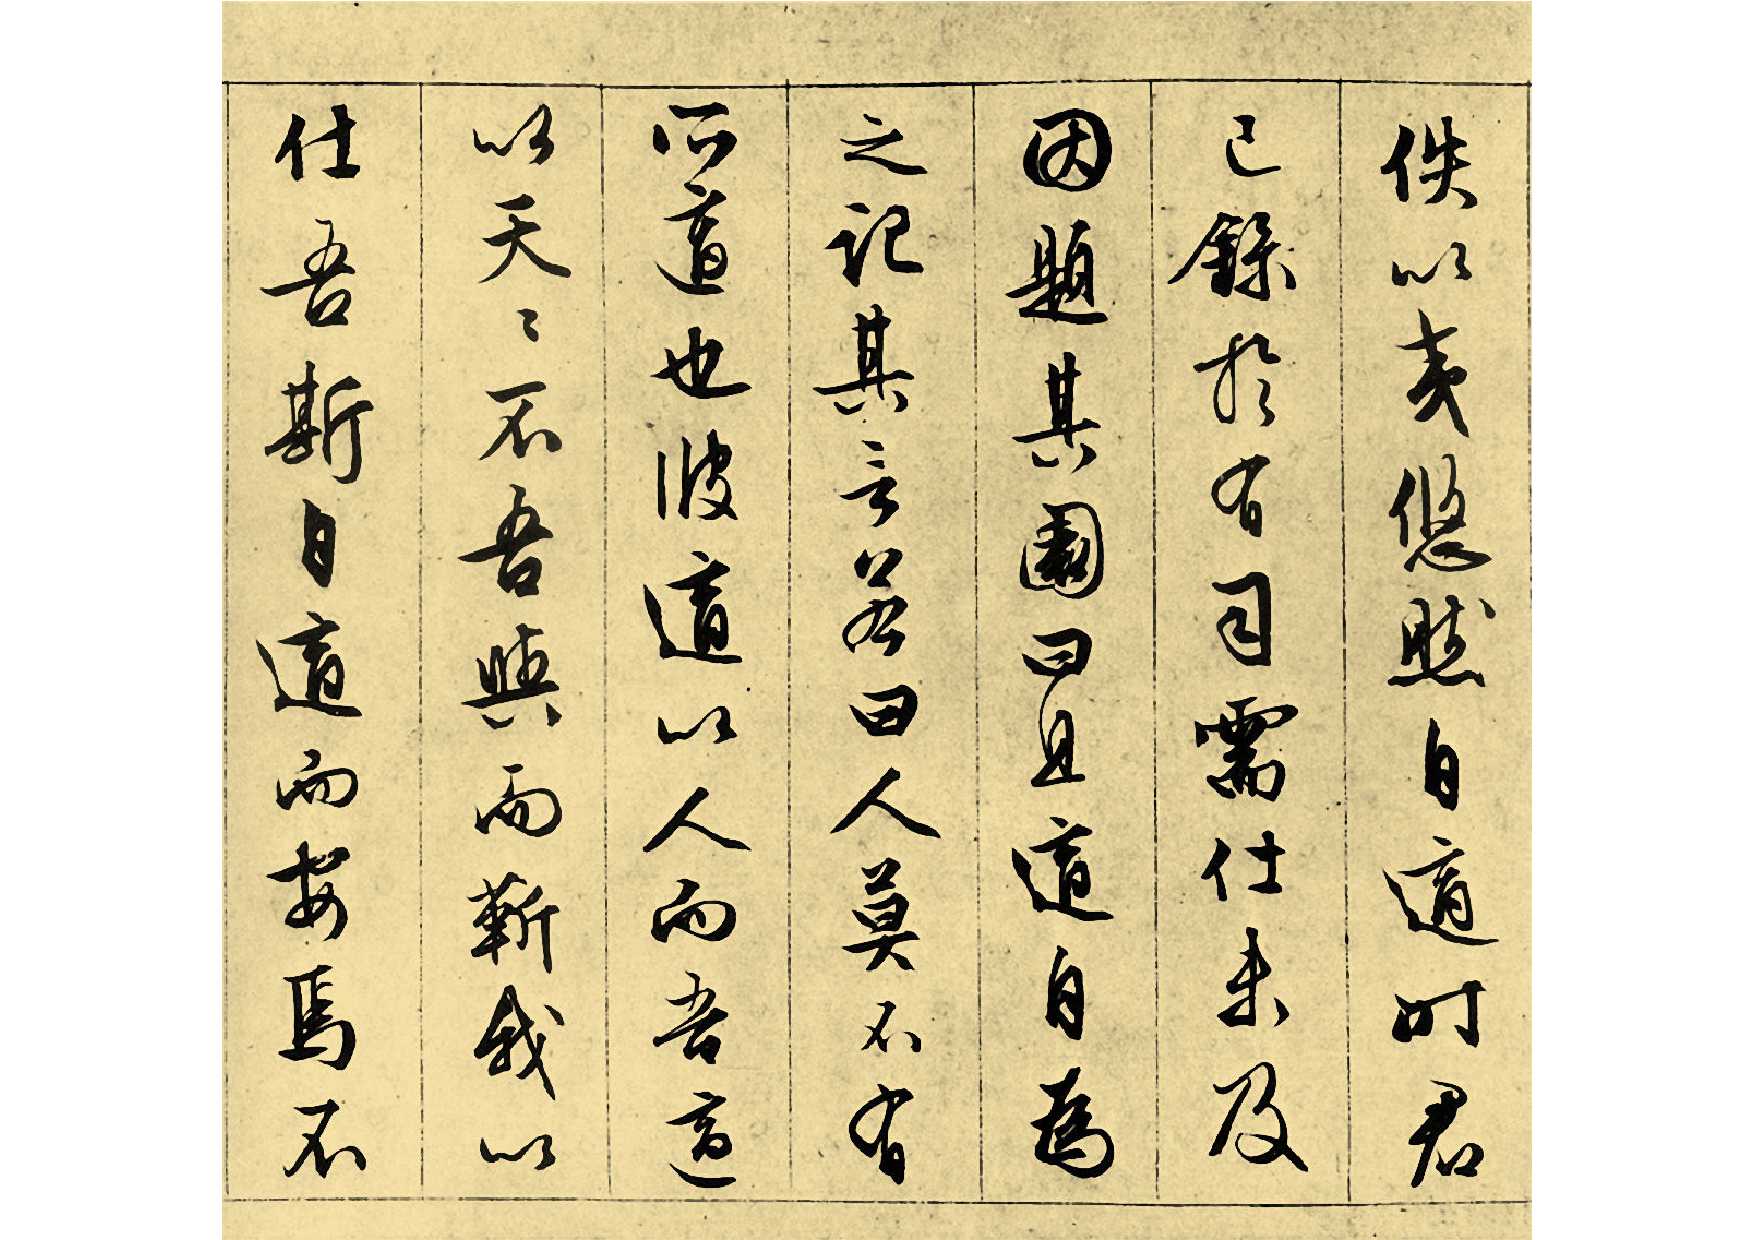 佚以夷悠然自適時君
已錄於有司需仕未及
因題其園曰且適自為
之記其言若曰人莫不有
所適也彼適以人而吾適
以天〻不吾與而蘄我以
仕吾斯自適而安焉不